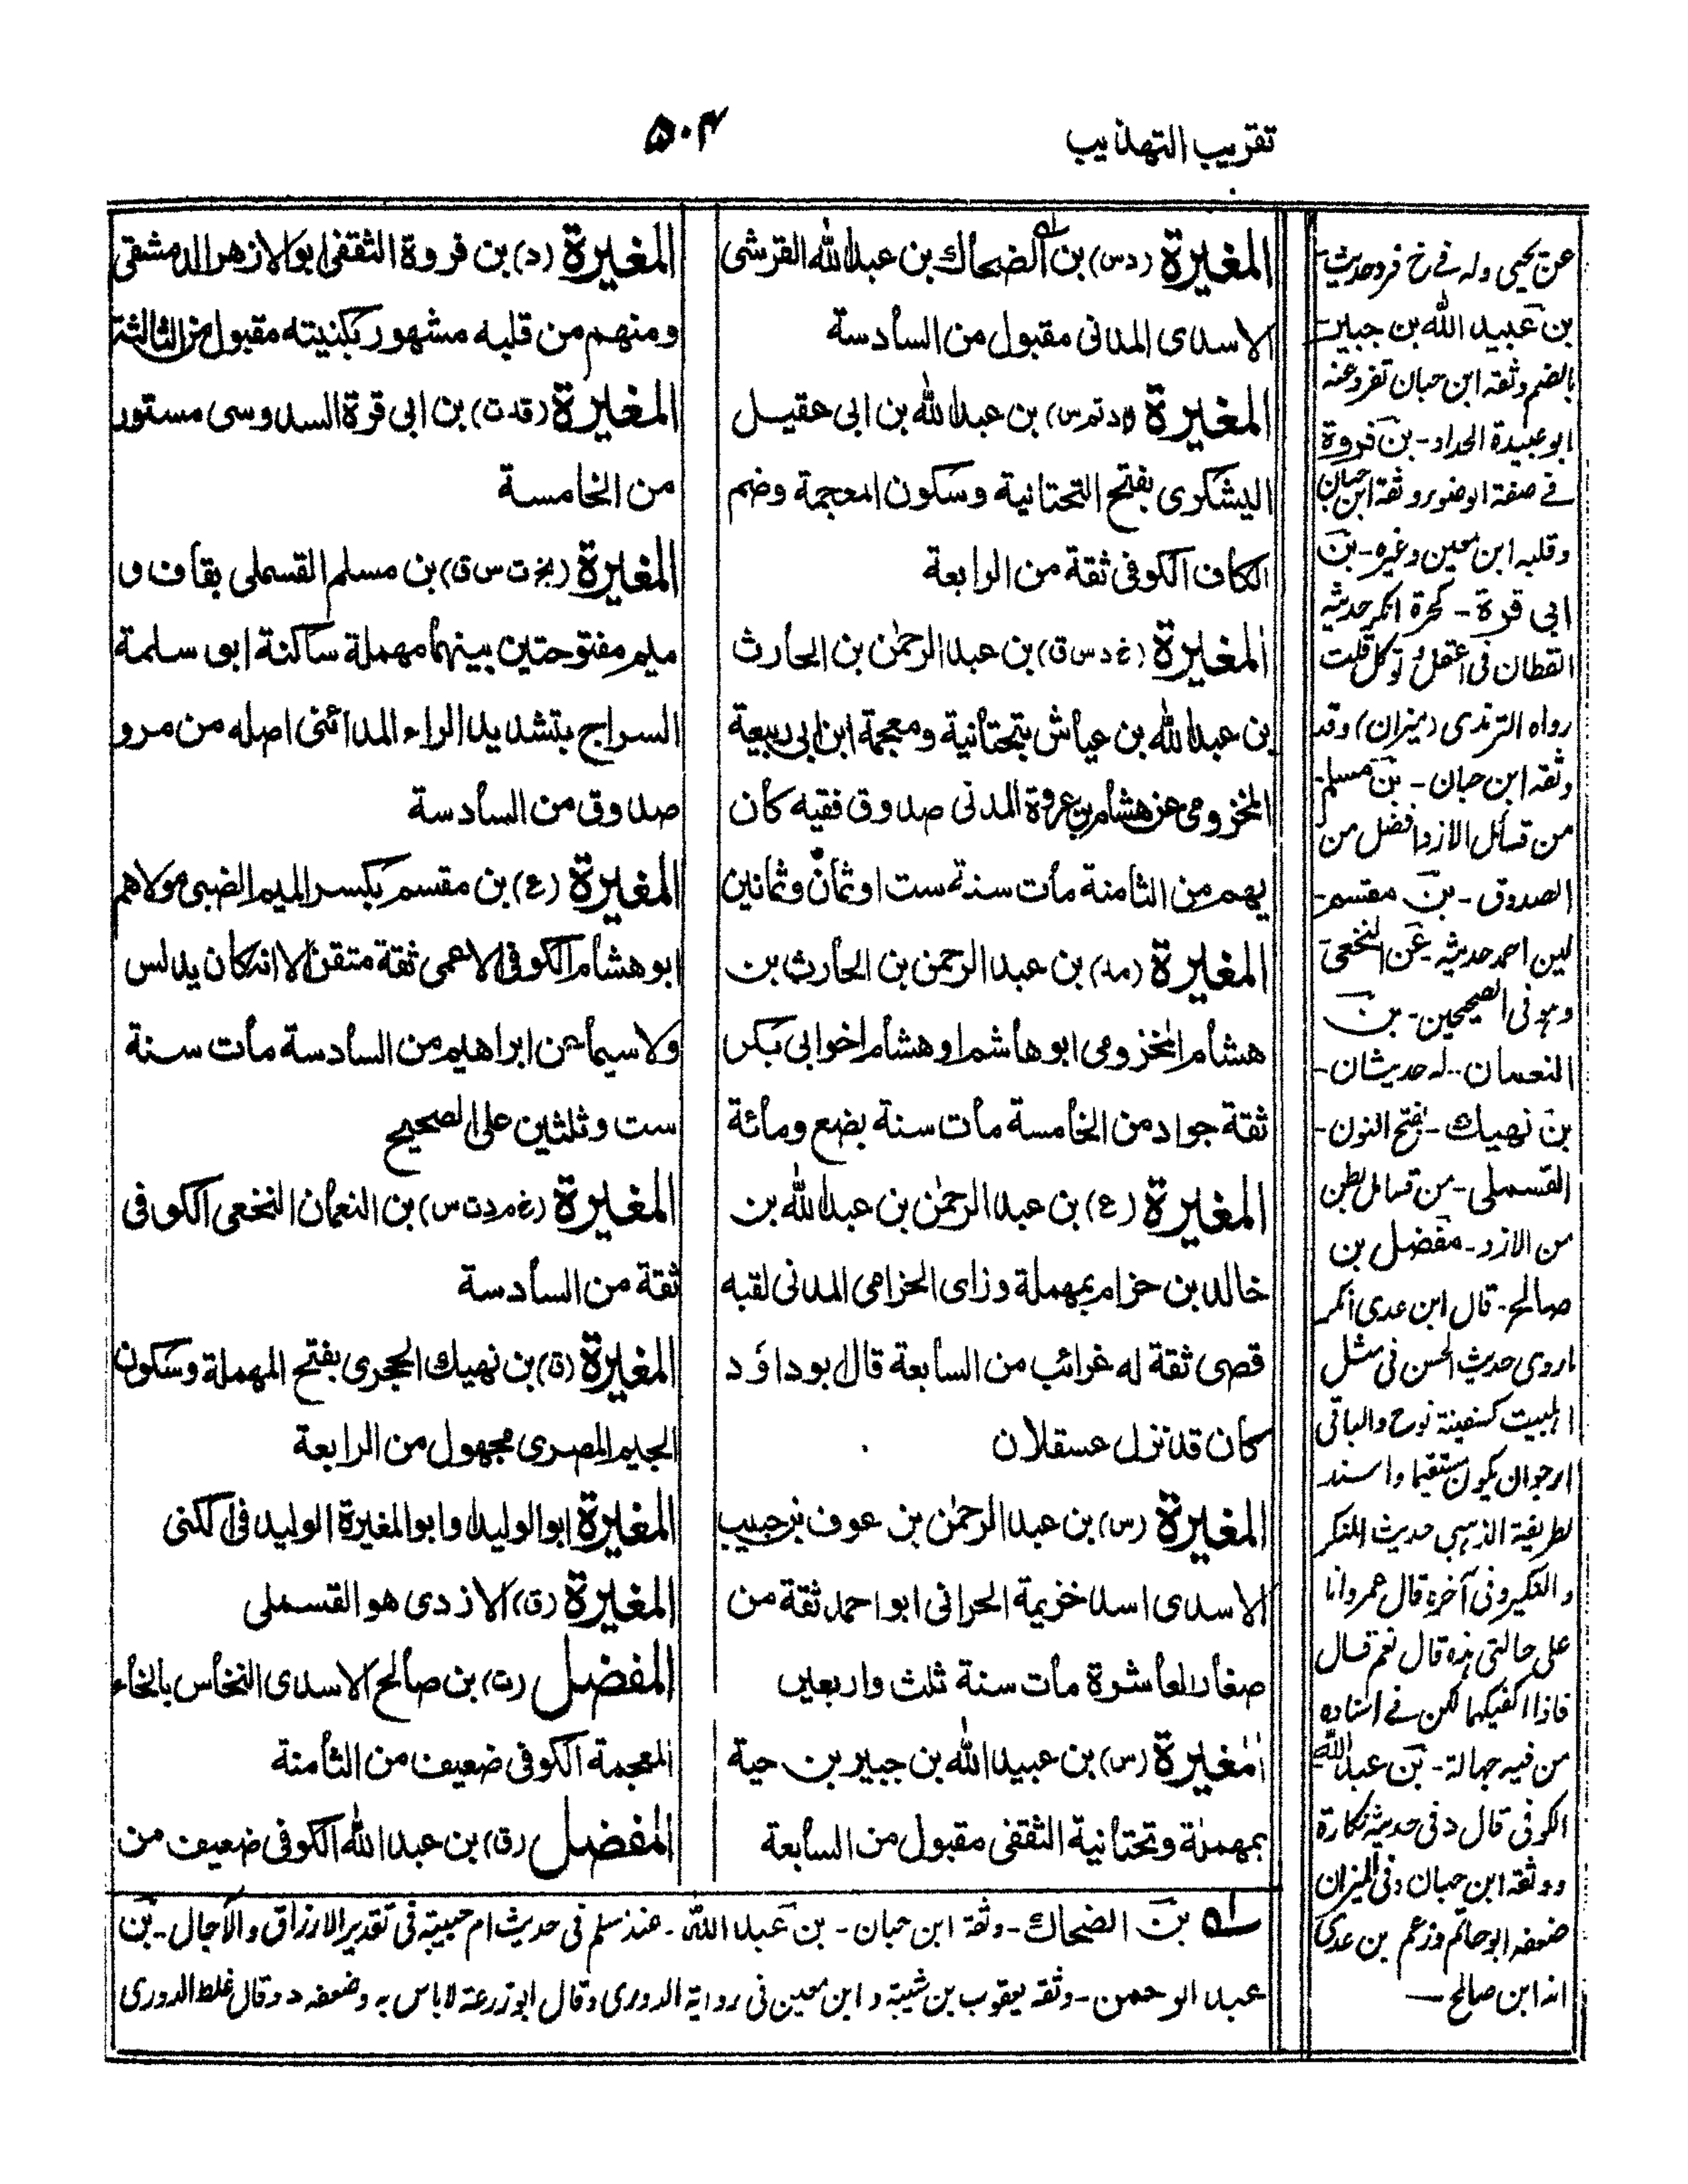 تقريب التهذيب
۵۰۴
المغيرة (دس) بن الضحاك بن عبد الله القرشى
الاسدى المدنى مقبول من السادسة
المغيرة (م د تم س) بن عبد الله بن ابى عقيل
اليشكرى بفتح التحتانية وسكون المعجمة وضم
الكاف الكوفى ثقة من الرابعة
المغيرة (خ د س ق) بن عبد الرحمٰن بن الحارث
بن عبد الله بن عياش بتحتانية ومعجمة ابن ابى ربيعة
المخزومى عن هشام بن عروة المدنى صدوق فقيه كان
يهم من الثامنة مات سنة ست اوثمان وثمانين
المغيرة (مد) بن عبد الرحمن بن الحارث بن
هشام المخزومى ابو هاشم او هشام اخو ابى بكر
ثقة جواد من الخامسة مات سنة بضع ومائة
المغيرة (ع) بن عبد الرحمٰن بن عبد الله بن
خالد بن حزام بمهملة وزاى الحزامى المدنى لقبه
قصى ثقة له غرائب من السابعة قال ابو داؤد
كان قد نزل عسقلان
المغيرة (س) بن عبد الرحمٰن بن عوف بن حبيب
الاسدى اسد خزيمة الحرانى ابو احمد ثقة من
صغار العاشرة مات سنة ثلث واربعين
المغيرة (س) بن عبيد الله بن جبير بن حية
بمهملة وتحتانية الثقفى مقبول من السابعة
المغيرة (د) بن فروة الثقفى ابو الازهر الدمشقى
ومنهم من قلبه مشهور بكنيته مقبول من الثالثة
المغيرة (قدت) بن ابى قرة السدوسى مستور
من الخامسة
المغيرة (بخ ت س ق) بن مسلم القسملى بقاف و
ميم مفتوحتين بينهما مهملة ساكنة ابو سلمة
السراج بتشديد الراء المدائنى اصله من مرو
صدوق من السادسة
المغيرة (ع) بن مقسم بكسر الميم الضبى مولاهم
ابو هشام الكوفى الاعمى ثقة متقن الا انه كان يدلس
ولاسيما عن ابراهيم من السادسة مات سنة
ست وثلثين على الصحيح
المغيرة (خ م د ت س) بن النعمان النخعى الكوفى
ثقة من السادسة
المغيرة (ق) بن نهيك الحجرى بفتح المهملة وسكون
الجيم المصرى مجهول من الرابعة
المغيرة ابو الوليد وابو المغيرة الوليد فى الكنى
المغيرة (ق) الازدى هو القسملى
المفضل (ت) بن صالح الاسدى النخاس بالخاء
المعجمة الكوفى ضعيف من الثامنة
المفضل (ق) بن عبد الله الكوفى ضعيف من
عن يحيى وله فے خ فرد حديث
بن عبيد الله بن جبير
بالضم وثقه ابن حبان تفرد عنه
ابو عبيدة الحداد - بن فروة
فے صفة الوضوء وثقه ابن حبان
وقلبه ابن معين وغيره - بن
ابى قرة - كمرة انكر حديثه
القطان فى اعقل وتوكل قلت
رواه الترمذى (ميزان) وقد
وثقه ابن حبان - بن مسلم
من قسامل الازد افضل من
الصدوق - بن مقسم
لين احمد حديثه عن النخعى
وهو فى الصحيحين - بن
النعمان - له حديثان -
بن نهيك - بفتح النون -
القسملى - من قسامل بطن
من الازد - مفضل بن
صالح - قال ابن عدى انكر
ما روى حديث الحسن فى مثل
اهلبيت كسفينة نوح والباقى
ارجو ان يكون مستقيما واسند
بطريقة الذهبى حديث المنكر
والنكير وفى آخره قال عمر وانا
على حالتى هذه قال نعم قال
فاذا اكفيكهما لكن فے اسناده
من فيه جهالة - بن عبد الله
الكوفى قال د فى حديثه نكارة
ووثقه ابن حبان وفى الميزان
ضعفه ابو حاتم وزعم بن عدى
انه ابن صالح —
لـه بن الضحاك - وثقه ابن حبان - بن عبد الله - عند مسلم فى حديث ام حبيبة فى تقدير الارزاق والآجال - بن
عبد الرحمن - وثقه يعقوب بن شيبة وابن معين فى رواية الدورى وقال ابو زرعة لاباس به وضعفه د وقال غلط الدورى